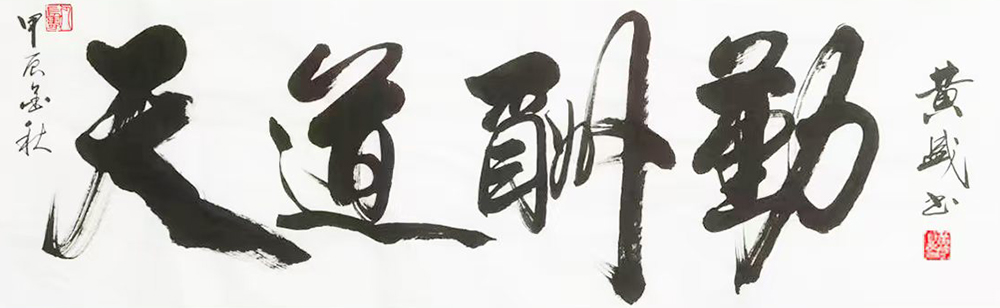 甲辰金秋
天道酬勤
黄盛书